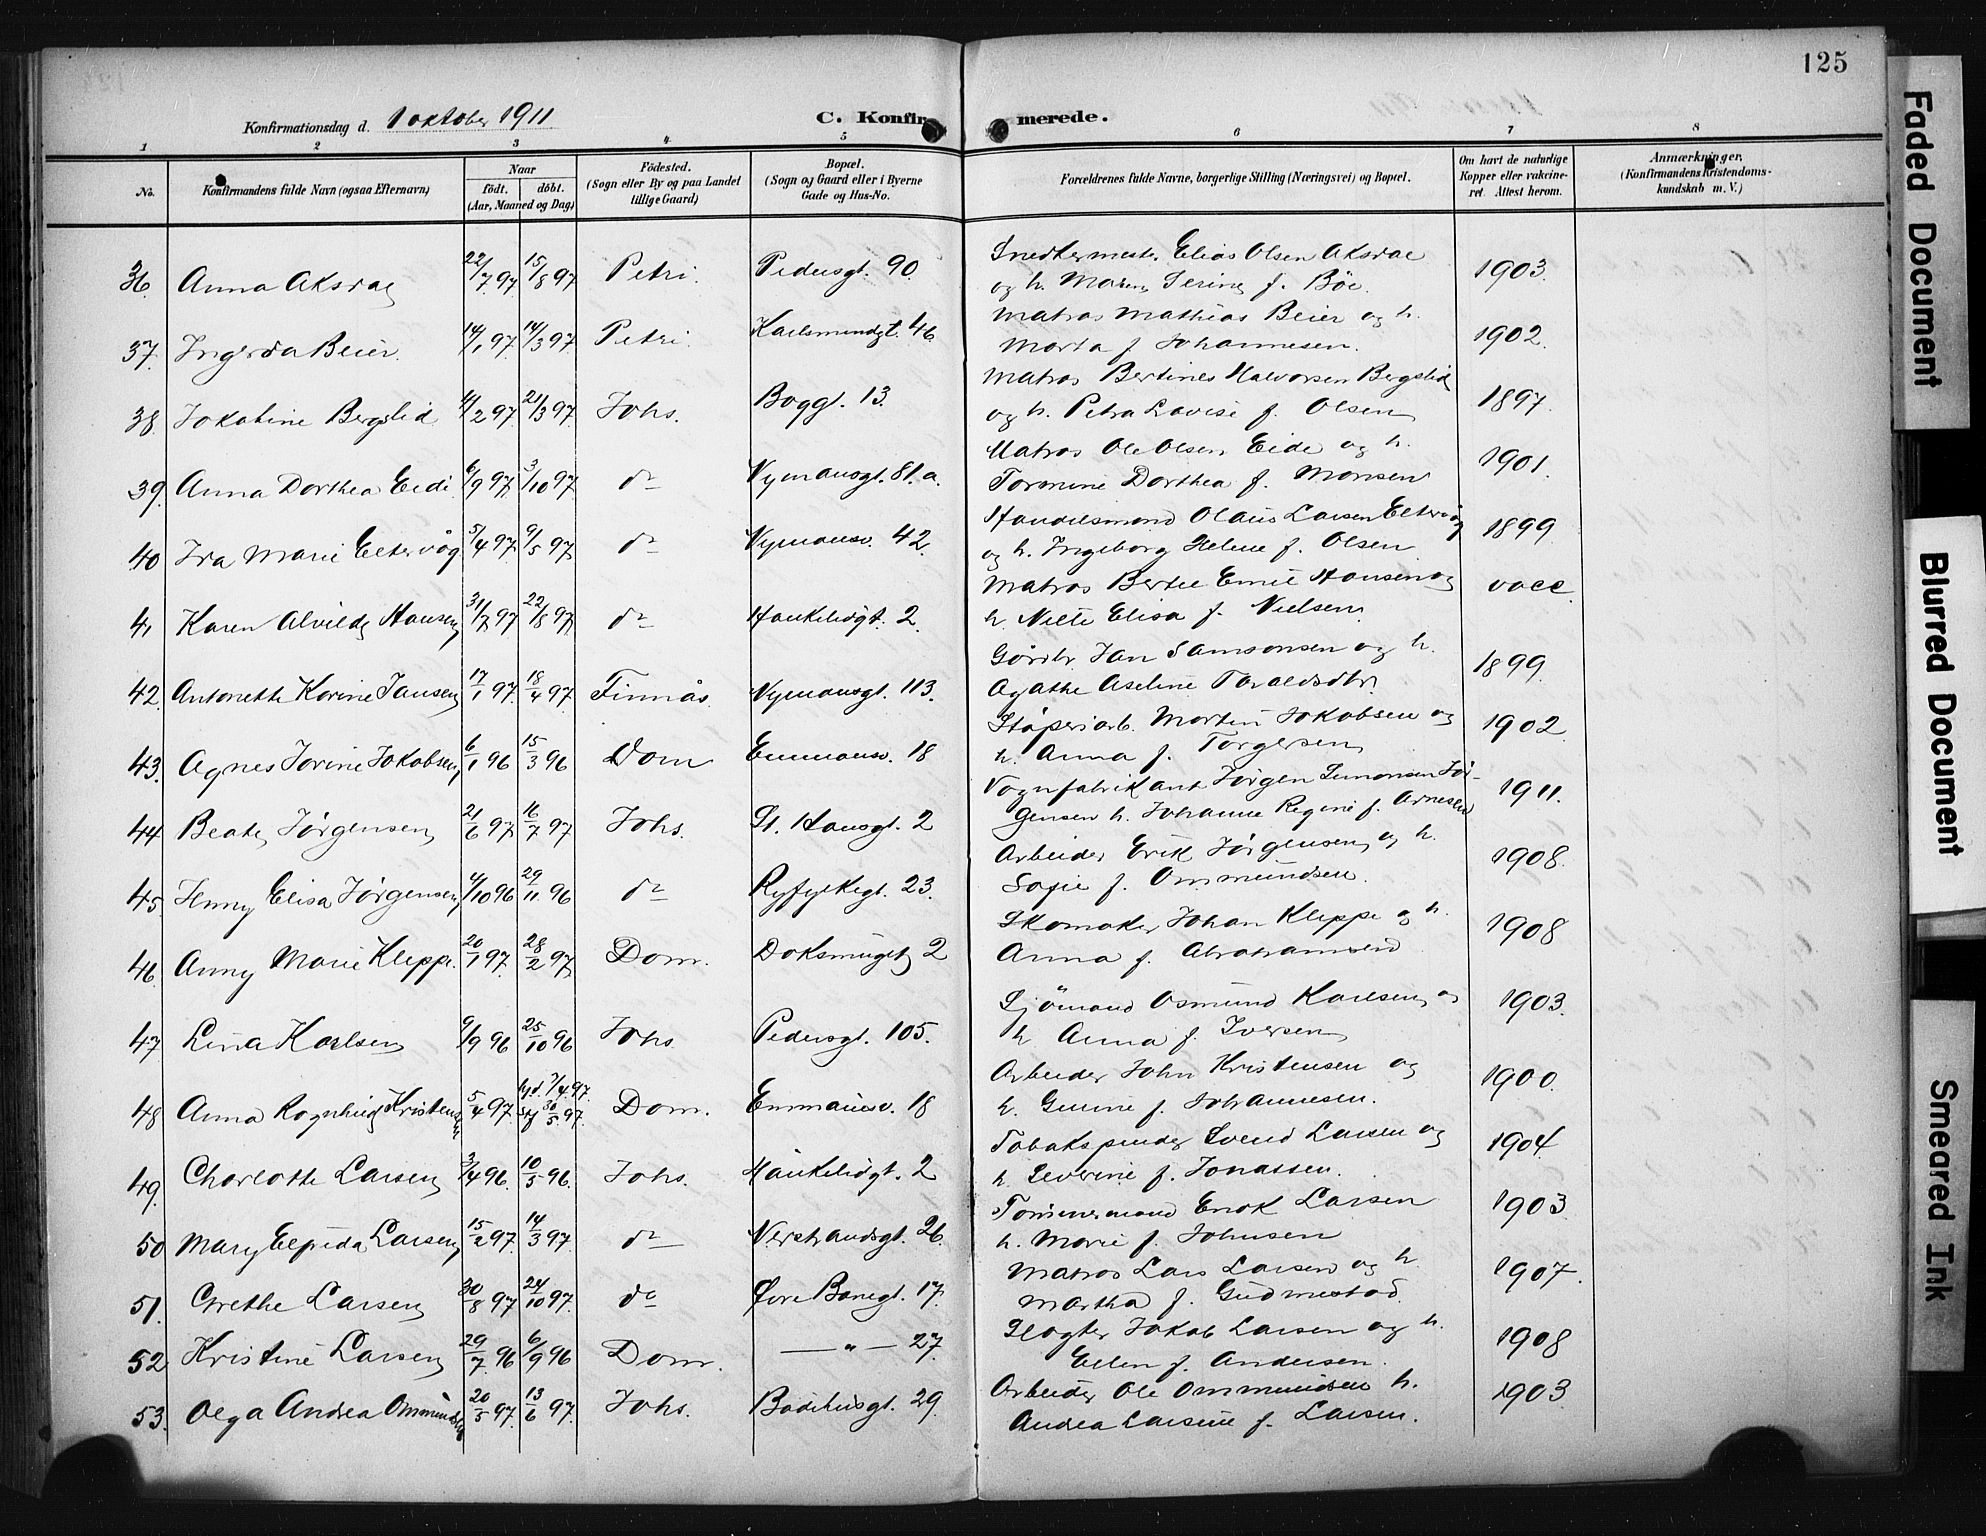 125
Konfirmationsdag d. 1 oktober 1911
C. Konfirmerede.
1 2 3 4 5 6 7 8
No. Konfirmandens fulde Navn (ogsaa Efternavn) Naar født. døbt. (Aar, Maaned og Dag) Fødested. (Sogn eller By og paa Landet tillige Gaard) Bopæl. (Sogn og Gaard eller i Byerne Gade og Hus-No. Forældrenes fulde Navne, borgerlige Stilling (Næringsvei) og Bopæl. Om havt de naturlige Kopper eller vakcineret. Attest herom. Anmærkninger. (Konfirmandens Kristendomskundskab m. V.)
36. Anna Aksdal 22/7 97. 15/8 97 Petri. Pedersgt. 90. Snedkermester Elias Olsen Aksdal og h. Maren Serine f. Böe. 1903.
37. Ingerda Beier. 14/1 97. 14/3 97 Petri. Karlsmindegt. 46. Matros Mathias Beier og h. Marta f. Johannesen. 1902.
38. Jokabine Bergslid 4/2 97 21/3 97 Johs. Boggt. 13. Matros Bertines Halvorsen Bergslid og h. Petra Lovise f. Olsen 1897.
39. Anna Dorthea Eide 6/9 97 3/10 97 do Nymansgt. 81.a. Matros Ole Olsen Eide og h. Tormine Dorthea f. Monsen 1901.
40 Ira Marie Eltervåg 5/4 97. 9/5 97 do Nymansv. 42. Handelsmand Olaus Larsen Eltervåg og h. Ingeborg Helene f. Olsen 1899
41 Karen Alvilde Hansen 31/7 97 22/8 97 do Haukelidgt. 2. Matros Bertel Emil Hansen og h. Nille Elisa f. Nielsen vacc.
42. Antonette Korine Jansen 17/1 97. 18/4 97. Finnås. Nymansgt. 113. Gårdbr. Jan Samsonsen og h. Agathe Aseline Taraldsdtr. 1899.
43. Agnes Jorine Jokobsen 6/1 96 15/3 96 Dom Emmausv. 18 Støperiarb. Martin Jokobsen og h. Anna f. Torgersen 1902.
44 Beate Jørgensen 21/6 97 16/7 97 Johs. St. Hansgt. 2 Vognfabrikant Jørgen Simonsen Jørgensen h. Johanne Regine f. Arnesen 1911.
45 Jenny Elisa Jørgensen 4/10 96 29/11 96 do Ryfylkegt. 23. Arbeider Erik Jørgensen og h. Sofie f. Ommundsen. 1908.
46 Anny Marie Kleppe. 20/1 97. 28/2 97 Dom. Doksmuget 2 Skomaker Johan Kleppe og h. Anna f. Abrahamsen 1908
47 Lina Karlsen 9/9 96 25/10 96 Johs Pedersgt. 105. Sjömand Osmund Karlsen og h Anna f. Iversen 1903.
48 Anna Ragnhild Kristensen 5/4 97. hjd. 7/4 97. stf 30/5 97. Dom. Emmausv. 18 Arbeider John Kristensen og h. Gurine f. Johannesen. 1900.
49. Charlotte Larsen 3/4 96. 10/5 96. Johs. Haukelidgt. 2 Tobakspinder Svend Larsen og h. Severine f. Jonassen. 1904
50 Mary Elpida Larsen 15/2 97. 14/3 97. do Nerstrandsgt. 26. Tømmermand Enok Larsen h. Marie f. Johnsen 1903
51. Grethe Larsen 30/8 97 24/10 97. do Øvre Banegt. 17. Matros Lars Larsen og h. Martha f. Gudmestad. 1907.
52 Kristine Larsen 29/7 96 6/9 96 Dom. — „ — 27. Slagter Jakob Larsen og h. Ellen f. Andersen. 1908
53. Olga Andrea Ommundsen 20/5 97. 13/6 97. Johs. Badehusgt. 29. Arbeider Ole Ommundsen h. Andrea Larsine f. Larsen. 1903
Faded Document
Blurred Document
Smeared Ink